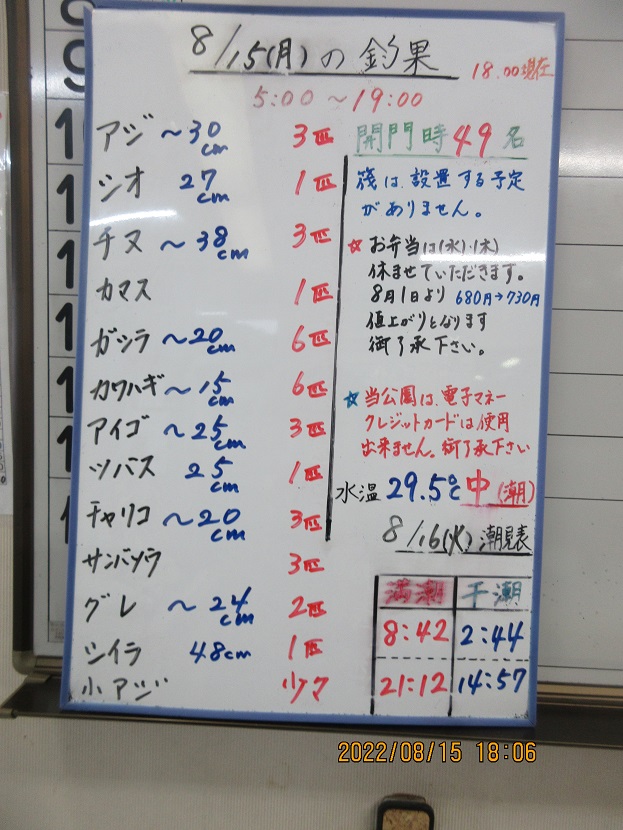 8/15(月)の釣果
18.00現在
5:00～19:00
アジ ～30cm 3匹
シオ 27cm 1匹
チヌ ～38cm 3匹
カマス 1匹
ガシラ ～20cm 6匹
カワハギ ～15cm 6匹
アイゴ ～25cm 3匹
ツバス 25cm 1匹
チャリコ ～20cm 3匹
サンバソウ 3匹
グレ ～24cm 2匹
シイラ 48cm 1匹
小アジ 少々
開門時49名
筏は、設置する予定
がありません。
☆お弁当は(水)・(木)
休ませていただきます。
8月1日より 680円→730円
値上がりとなります
御了承下さい。
☆当公園は、電子マネー
クレジットカードは使用
出来ません。御了承下さい
水温 29.5℃ 中(潮)
8/16(火)潮見表
満潮 干潮
8:42 2:44
21:12 14:57
2022/08/15 18:06